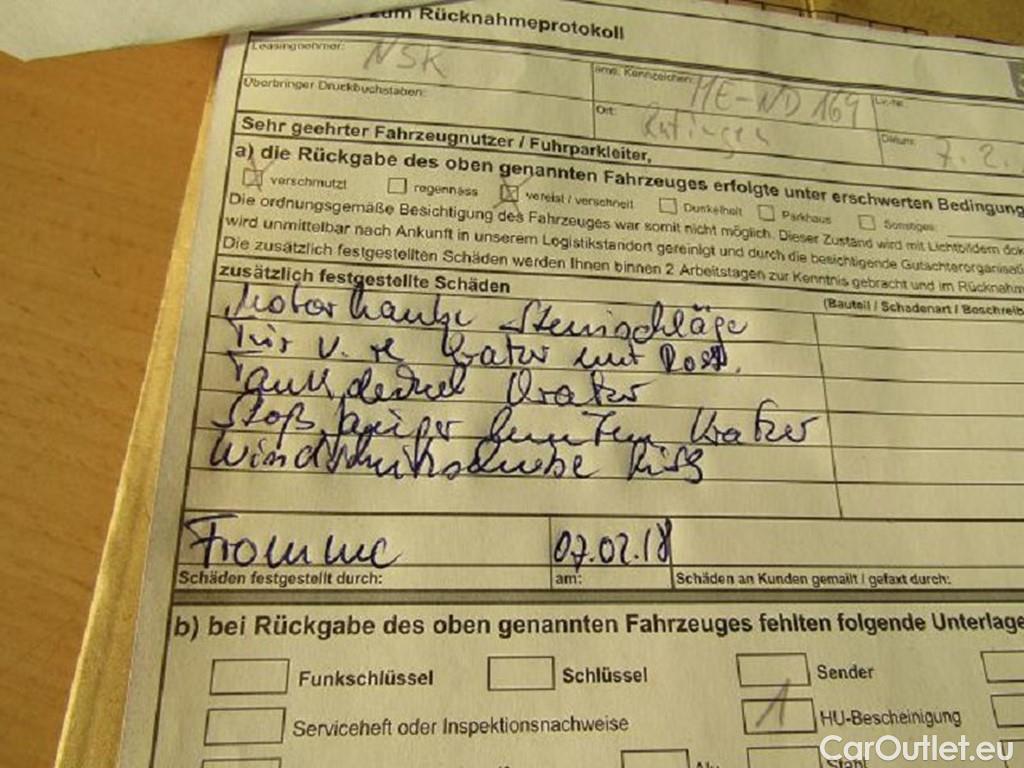 zum Rücknahmeprotokoll
Leasingnehmer: NSK
amtl. Kennzeichen: ME-ND 169
Lv.-Nr.
Überbringer Druckbuchstaben:
Ort: Ratingen
Datum: 7.2.
Sehr geehrter Fahrzeugnutzer / Fuhrparkleiter,
a) die Rückgabe des oben genannten Fahrzeuges erfolgte unter erschwerten Bedingung
verschmutzt regennass vereist / verschneit Dunkelheit Parkhaus Sonstiges:
Die ordnungsgemäße Besichtigung des Fahrzeuges war somit nicht möglich. Dieser Zustand wird mit Lichtbildern dok
wird unmittelbar nach Ankunft in unserem Logistikstandort gereinigt und durch die besichtigende Gutachterorganisati
Die zusätzlich festgestellten Schäden werden Ihnen binnen 2 Arbeitstagen zur Kenntnis gebracht und im Rücknahm
zusätzlich festgestellte Schäden
(Bauteil / Schadenart / Beschreib
Motorhaube Steinschläge
Tür v. re Kratzer mit Rost.
Tankdeckel Kratzer
Stoßfänger hinten Kratzer
Windschutzscheibe Riss
Fromme
07.02.18
Schäden festgestellt durch:
am:
Schäden an Kunden gemailt / gefaxt durch:
b) bei Rückgabe des oben genannten Fahrzeuges fehlten folgende Unterlage
Funkschlüssel Schlüssel Sender
Serviceheft oder Inspektionsnachweise 1 HU-Bescheinigung
CarOutlet.eu